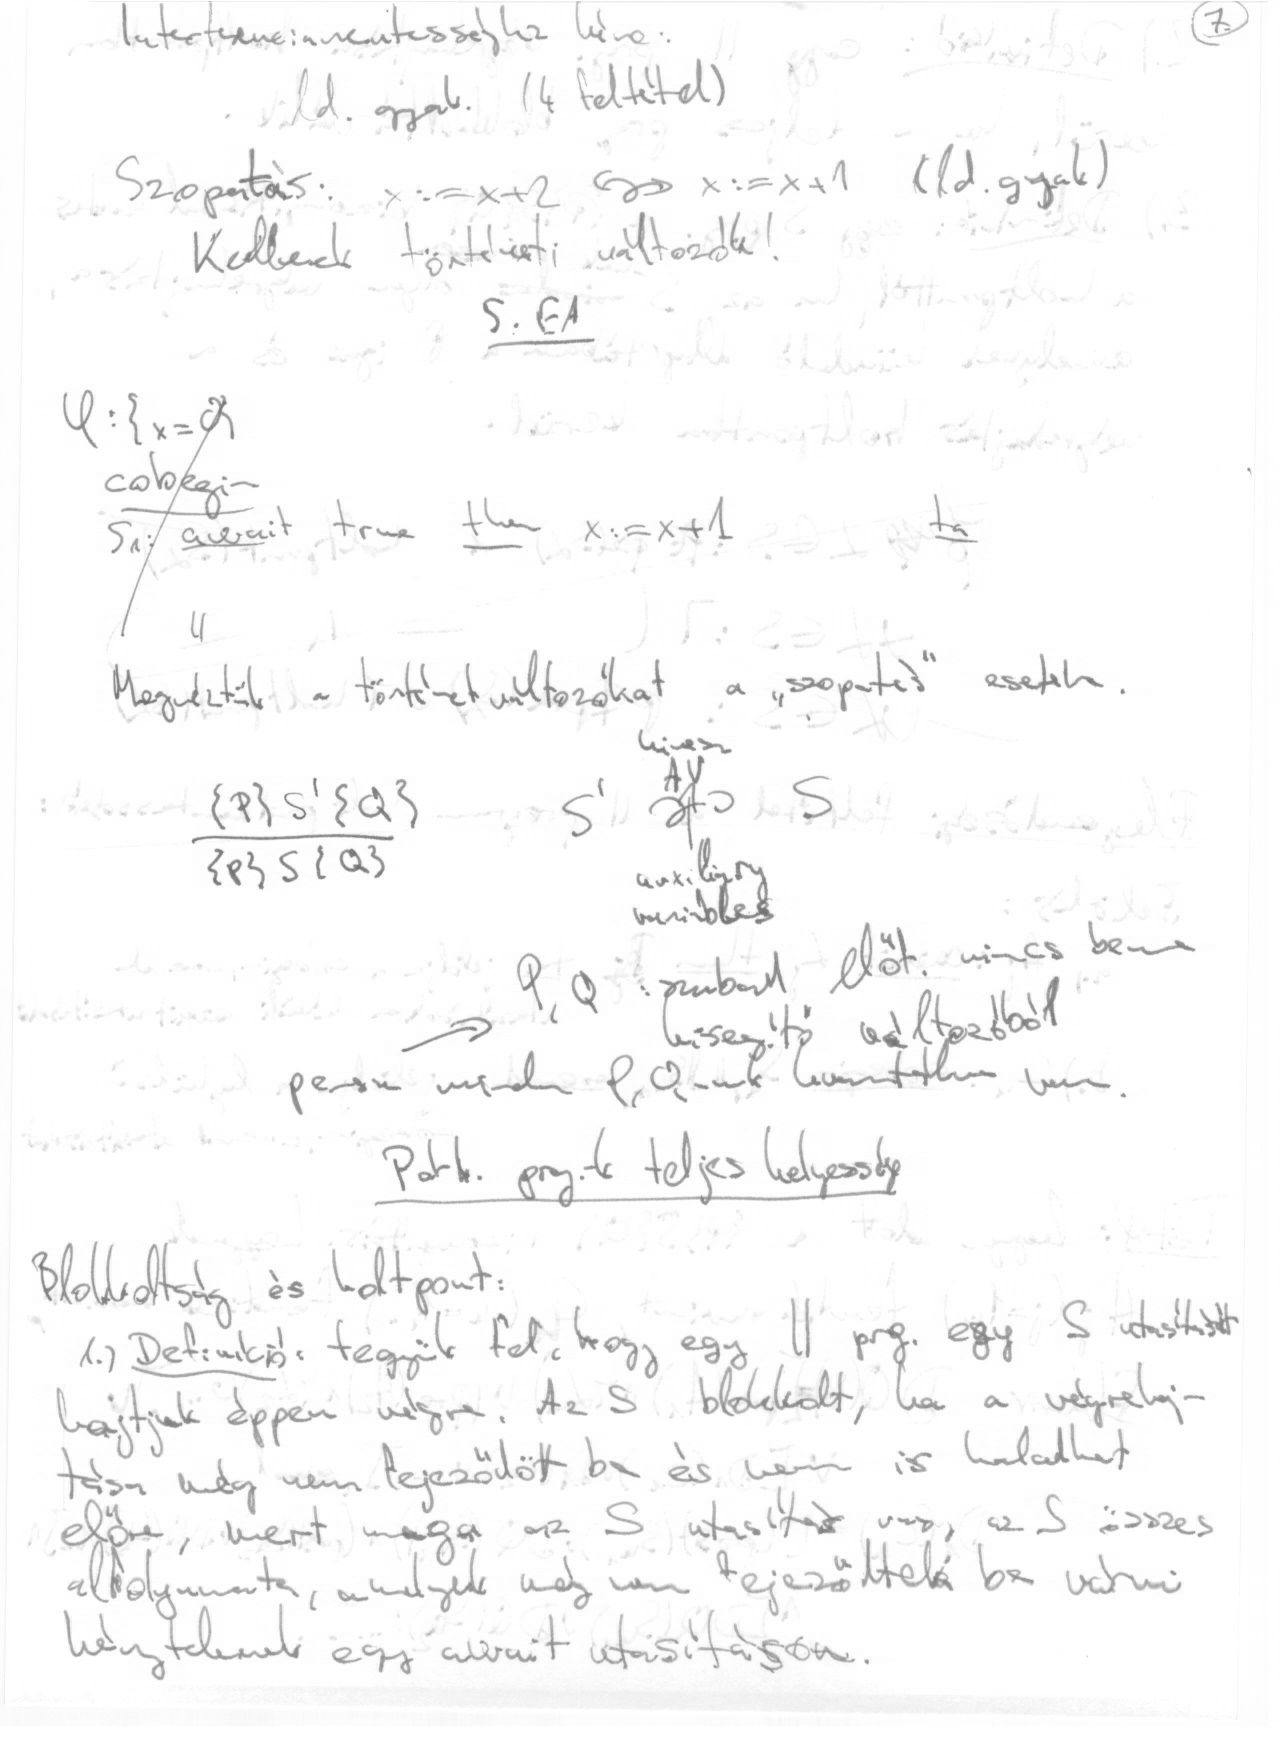 7.
Interferenciamentességhez kéne:
ld. gyak. (4 feltétel)
Szopatás: x:=x+2 <=> x:=x+1 (ld. gyak)
Kellenek történeti változók!
5. EA
φ:{x=0}
cobegin
S1: await true then x:=x+1 ta
Megnéztük a történetváltozókat a „szopatás" esetén.
kivesz
{P} S' {Q} S' AV S
{P} S {Q}
auxiliary
variables
P, Q : szabad előf. nincs benne
kisegítő változóból
persze minden P, Q-nak van.
Párh. prg.-k teljes helyesség
Blokkoltság és holtpont:
1.) Definíció: tegyük fel, hogy egy || prg. egy S utasítását
hajtjuk éppen végre. Az S blokkolt, ha a végrehaj-
tása még nem fejeződött be és nem is haladhat
előre, mert maga az S utasítás vár, az S összes
alfolyamata, amelyek még nem fejeződtek be várni
kénytelenek egy await utasításon.